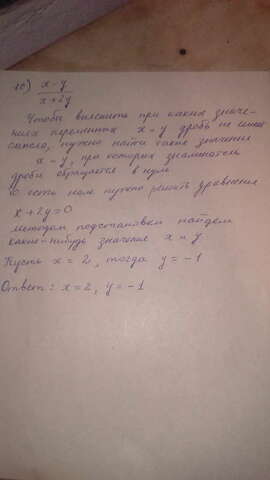 10) x-y
x+2y
Чтобы выяснить при каких значе-
ниях переменных x-y дробь не имеет
смысла, нужно найти такие значения
x-y, при которых знаменатель
дроби обращается в нуль
То есть нам нужно решить уравнение
x+2y=0
методом подстановки найдем
какие-нибудь значения x и y
Пусть x = 2, тогда y = -1
Ответ: x=2, y=-1